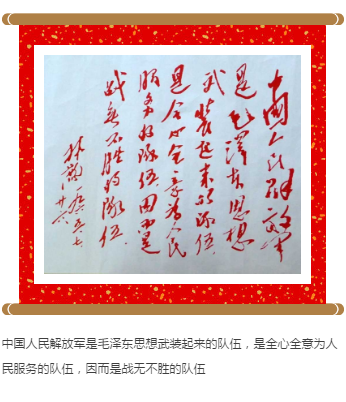 中国人民解放军
是毛澤东思想
武裝起来的隊伍，
是全心全意为人民
服务的隊伍，因而是
战无不胜的隊伍。
林彪
中国人民解放军是毛泽东思想武装起来的队伍，是全心全意为人
民服务的队伍，因而是战无不胜的队伍